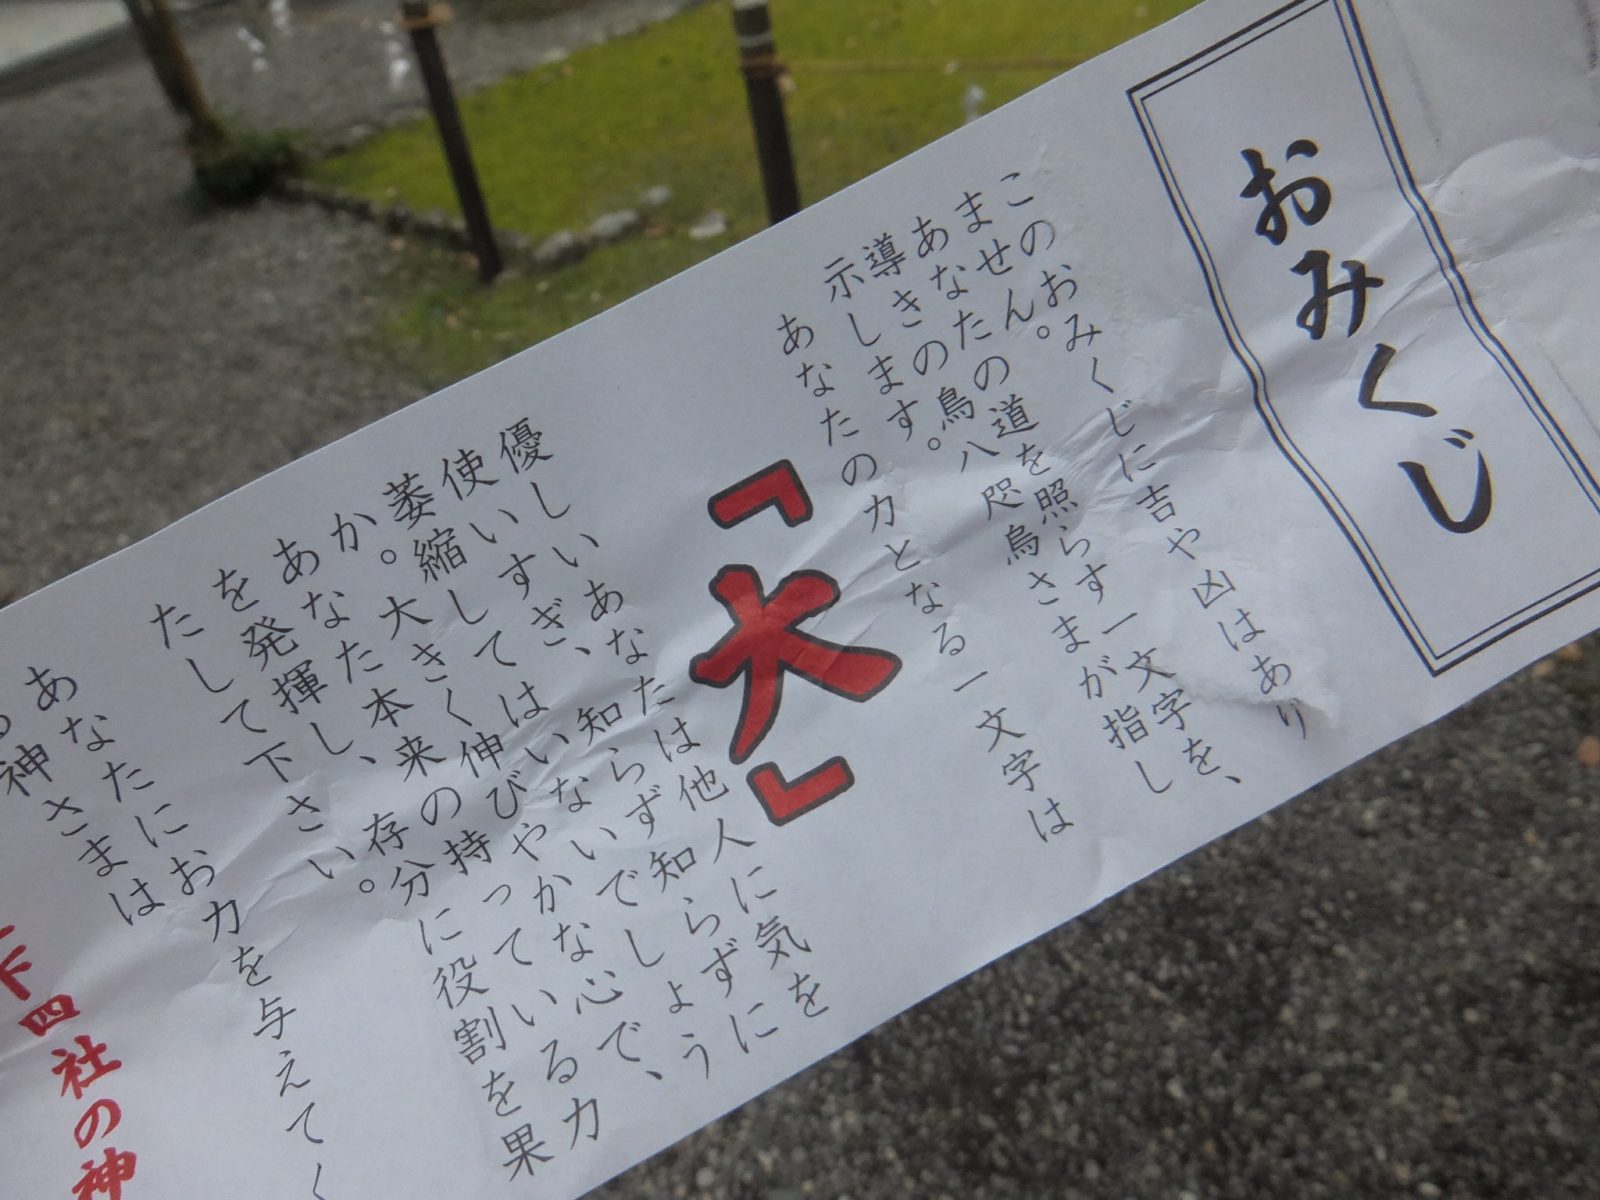 おみくじ
このおみくじに吉や凶はあり
ません。
あなたの道を照らす一文字を、
導きの鳥八咫烏さまが指し
示します。
あなたの力となる一文字は
「大」
優しいあなたは他人に気を
使いすぎ、知らず知らずに
萎縮してはいないでしょう
か。大きく伸びやかな心で、
あなた本来の持っている力
を発揮し、存分に役割を果
たして下さい。
あなたにお力を与えてく
る神さまは
下四社の神